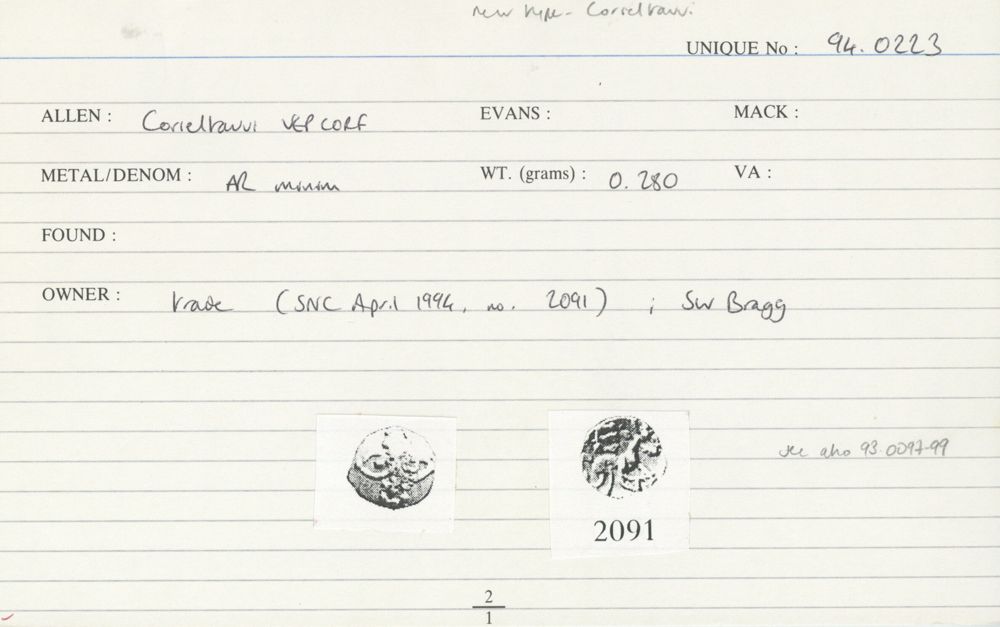 new type - Corieltauvi
UNIQUE No : 94.0223
ALLEN : Corieltauvi VEP CORF EVANS : MACK :
METAL/DENOM : AR minim WT. (grams) : 0.280 VA :
FOUND :
OWNER : trade (SNC April 1994, no. 2091) ; SW Bragg
see also 93.0097-99
2091
2
1